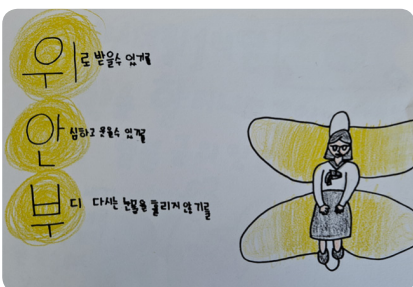 위로 받을수 있기를
안심하고 웃을수 있기를
부디 다시는 눈물을 흘리지 않기를